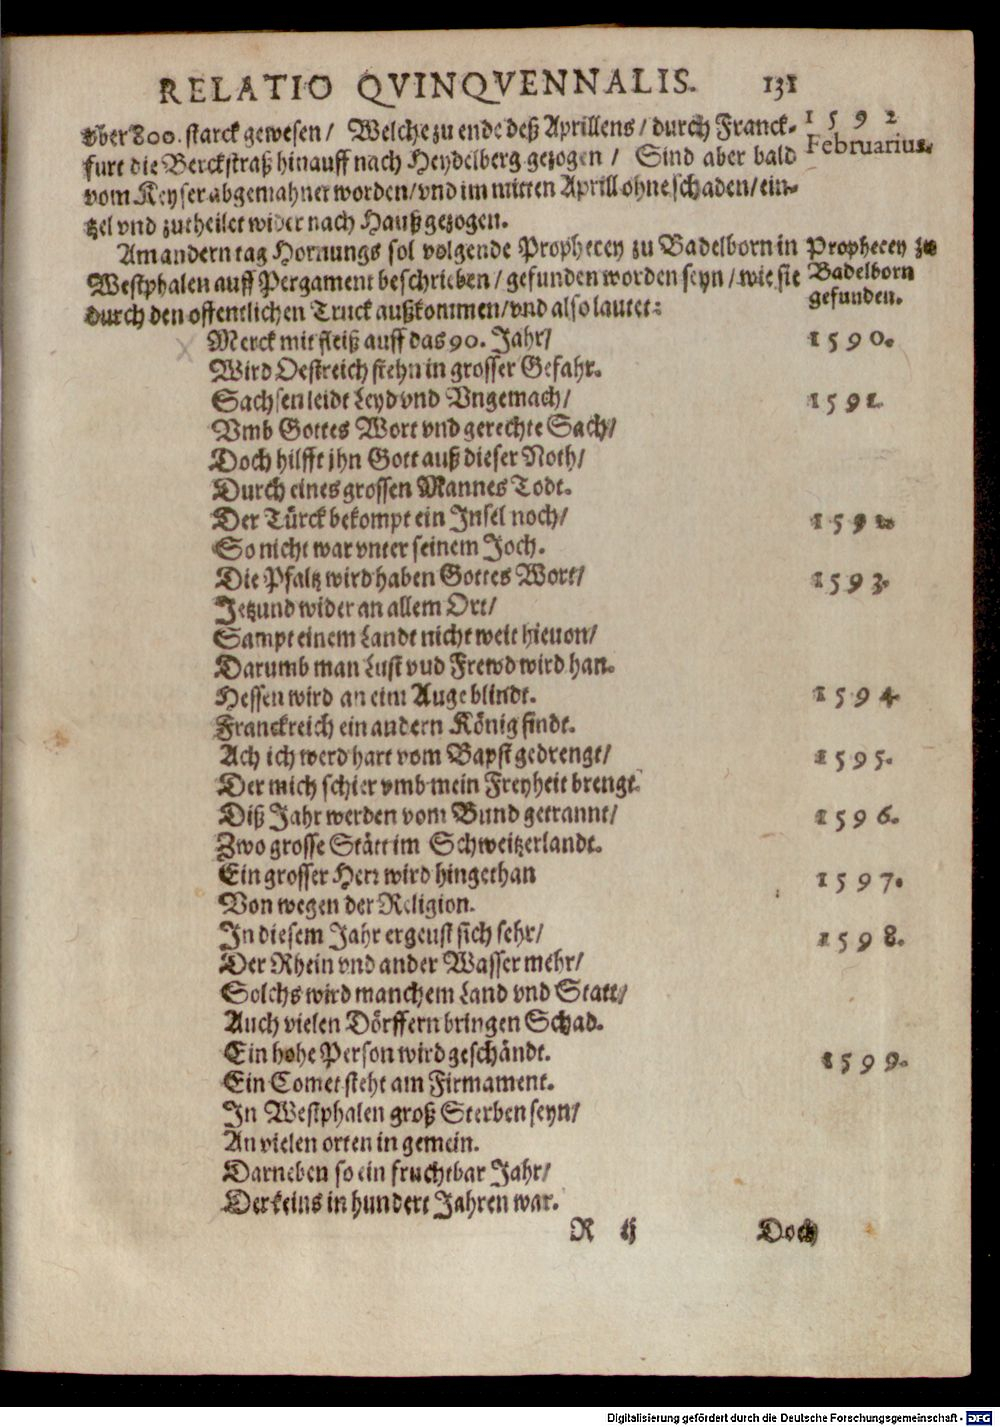 RELATIO QVINQVENNALIS. 131
vber 800. starck gewesen / Welche zu ende deß Aprillens / durch Franck-
furt die Berckstraß hinauff nach Heydelberg gezogen / Sind aber bald
vom Keyser abgemahnet worden/vnd im mitten Aprill ohne schaden/ein-
tzel vnd zutheilet wider nach Hauß gezogen.
1592
Februarius.
Am andern tag Hornungs sol volgende Prophecey zu Badelborn in
Westphalen auff Pergament beschrieben / gefunden worden seyn / wie sie
durch den offentlichen Truck außkommen/vnd also lautet:
Prophecey zu
Badelborn
gefunden.
Merck mit fleiß auff das 90. Jahr/ 1590.
Wird Oestreich stehn in grosser Gefahr.
Sachsen leidt Leyd vnd Vngemach/ 1591.
Vmb Gottes Wort vnd gerechte Sach/
Doch hilfft jhn Gott auß dieser Noth/
Durch eines grossen Mannes Todt.
Der Türck bekompt ein Insel noch/ 1592.
So nicht war vnter seinem Joch.
Die Pfaltz wird haben Gottes Wort/ 1593.
Jetzund wider an allem Ort/
Sampt einem Landt nicht weit hieuon/
Darumb man Lust vud Frewd wird han.
Hessen wird an eim Auge blindt. 1594.
Franckreich ein andern König findt.
Ach ich werd hart vom Bapst gedrengt/ 1595.
Der mich schier vmb mein Freyheit brengt.
Diß Jahr werden vom Bund getrannt/ 1596.
Zwo grosse Stätt im Schweitzerlandt.
Ein grosser Herr wird hingethan 1597.
Von wegen der Religion.
In diesem Jahr ergeust sich sehr/ 1598.
Der Rhein vnd ander Wasser mehr/
Solchs wird manchem Land vnd Statt/
Auch vielen Dörffern bringen Schad.
Ein hohe Person wird geschändt. 1599.
Ein Comet steht am Firmament.
In Westphalen groß Sterben seyn/
An vielen orten in gemein.
Darneben so ein fruchtbar Jahr/
Der keins in hundert Jahren war.
R ij Doch
Digitalisierung gefördert durch die Deutsche Forschungsgemeinschaft - DFG